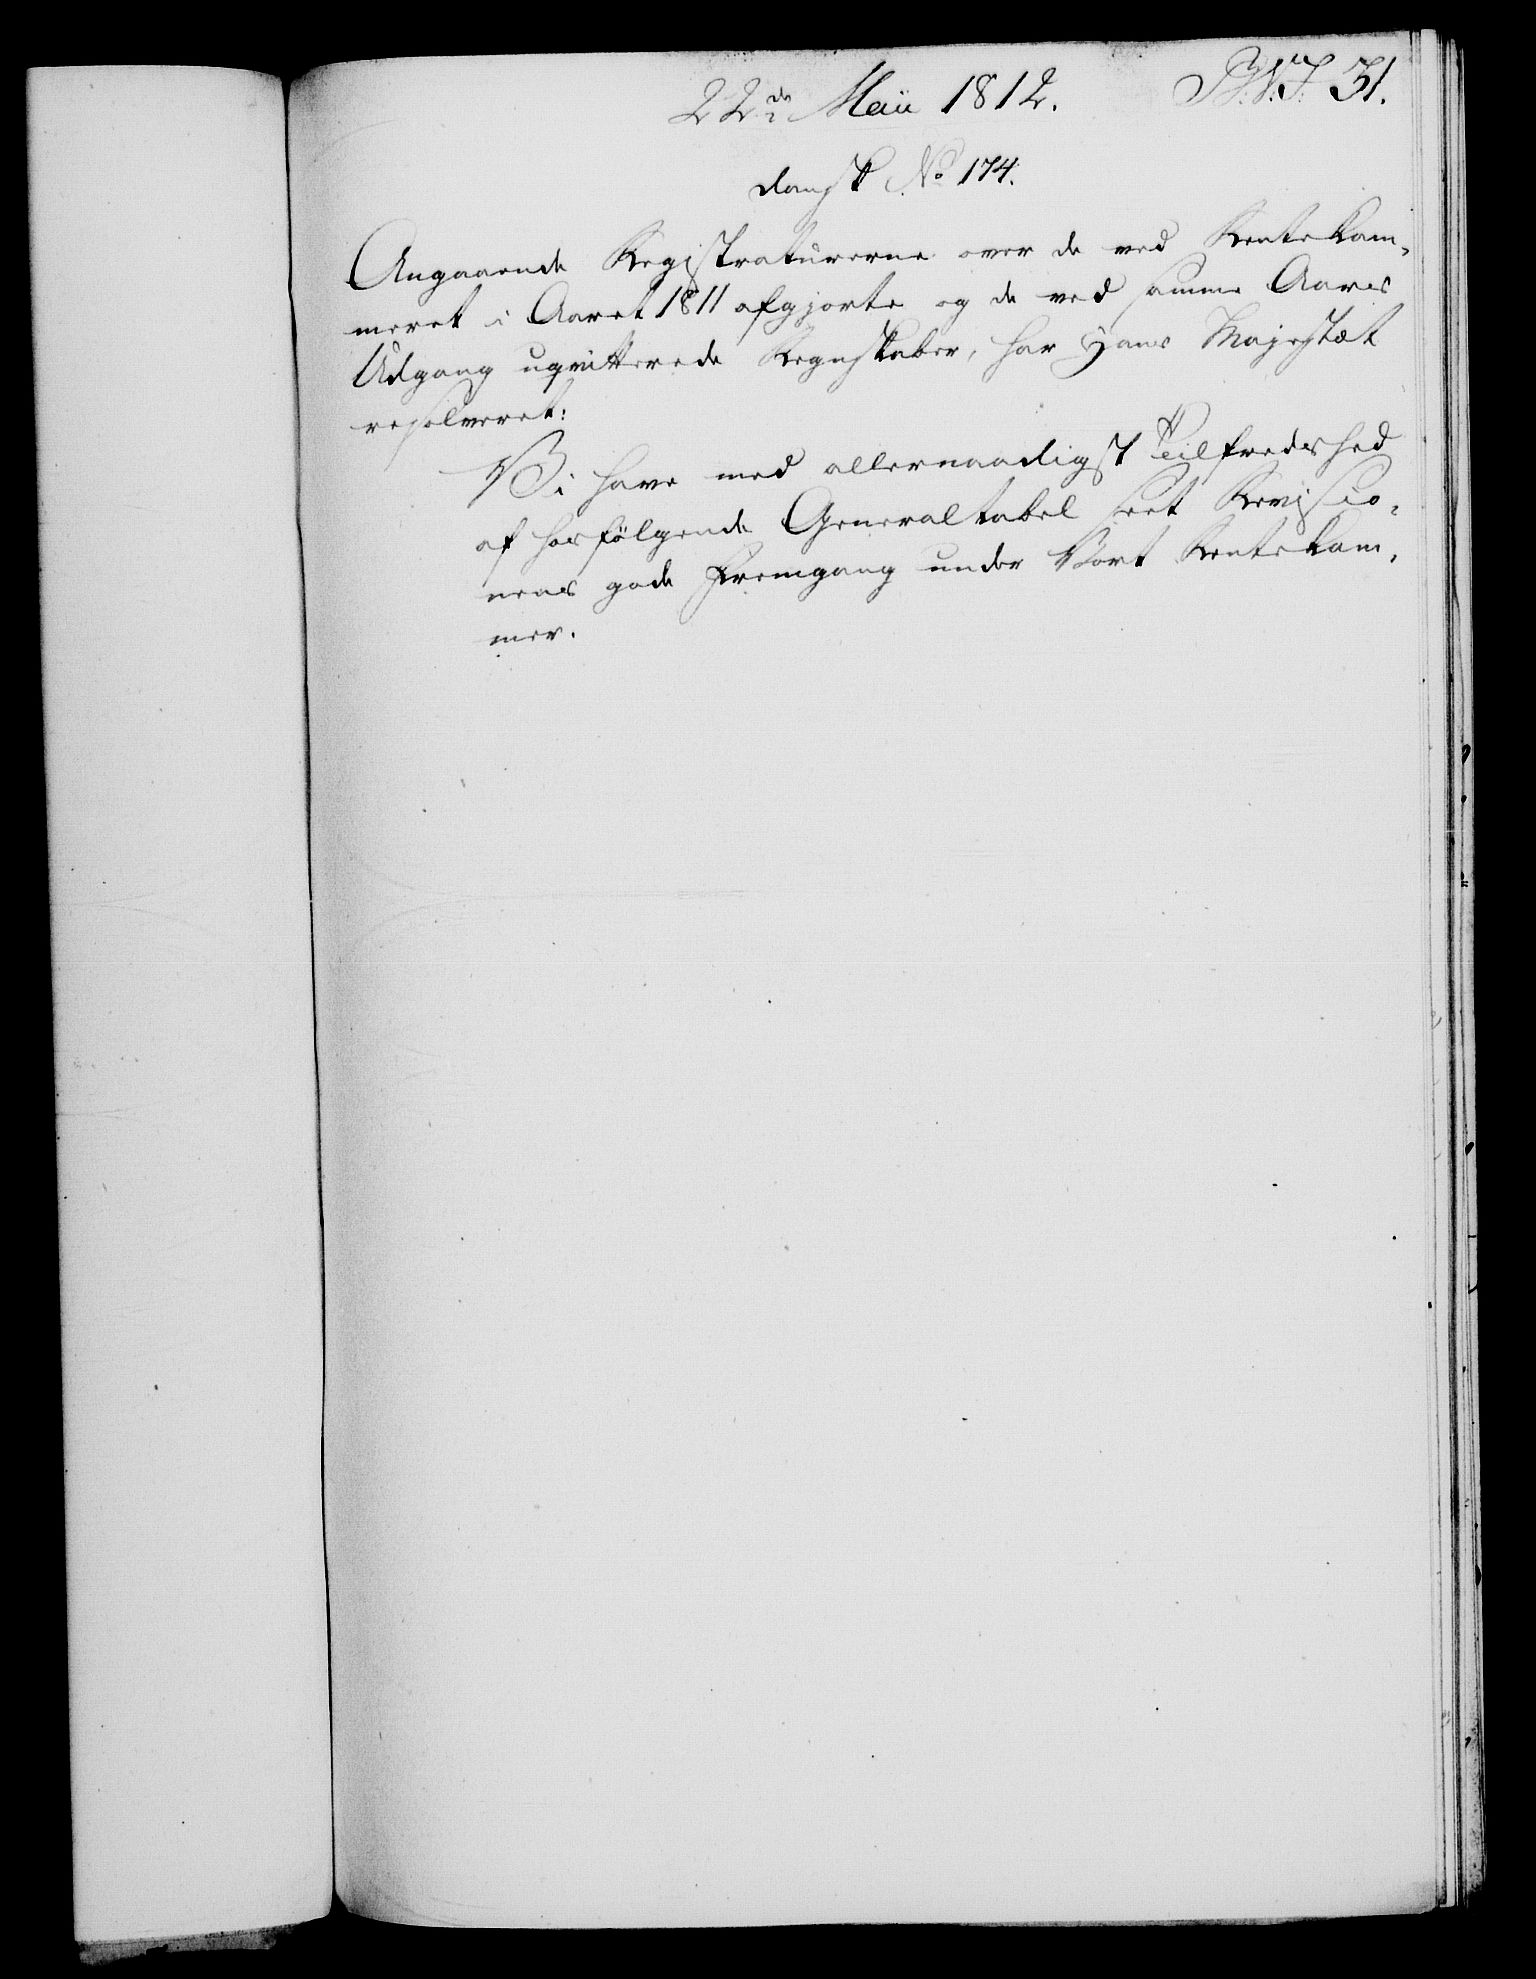 22de Maii 1812.
31.
dansk No 174.
Angaaende Registraturerne over de ved Rentekam-
meret i Aaret 1811 afgjorte og de ved samme Aars
Udgang uqvitterede Regnskaber, har Hans Majestæt
resolveret:
Vi have med allernaadigst Tilfredshed
af hosfölgende Generaltabel seet Revisio-
nens gode Fremgang under Vort Rentekam-
mer.